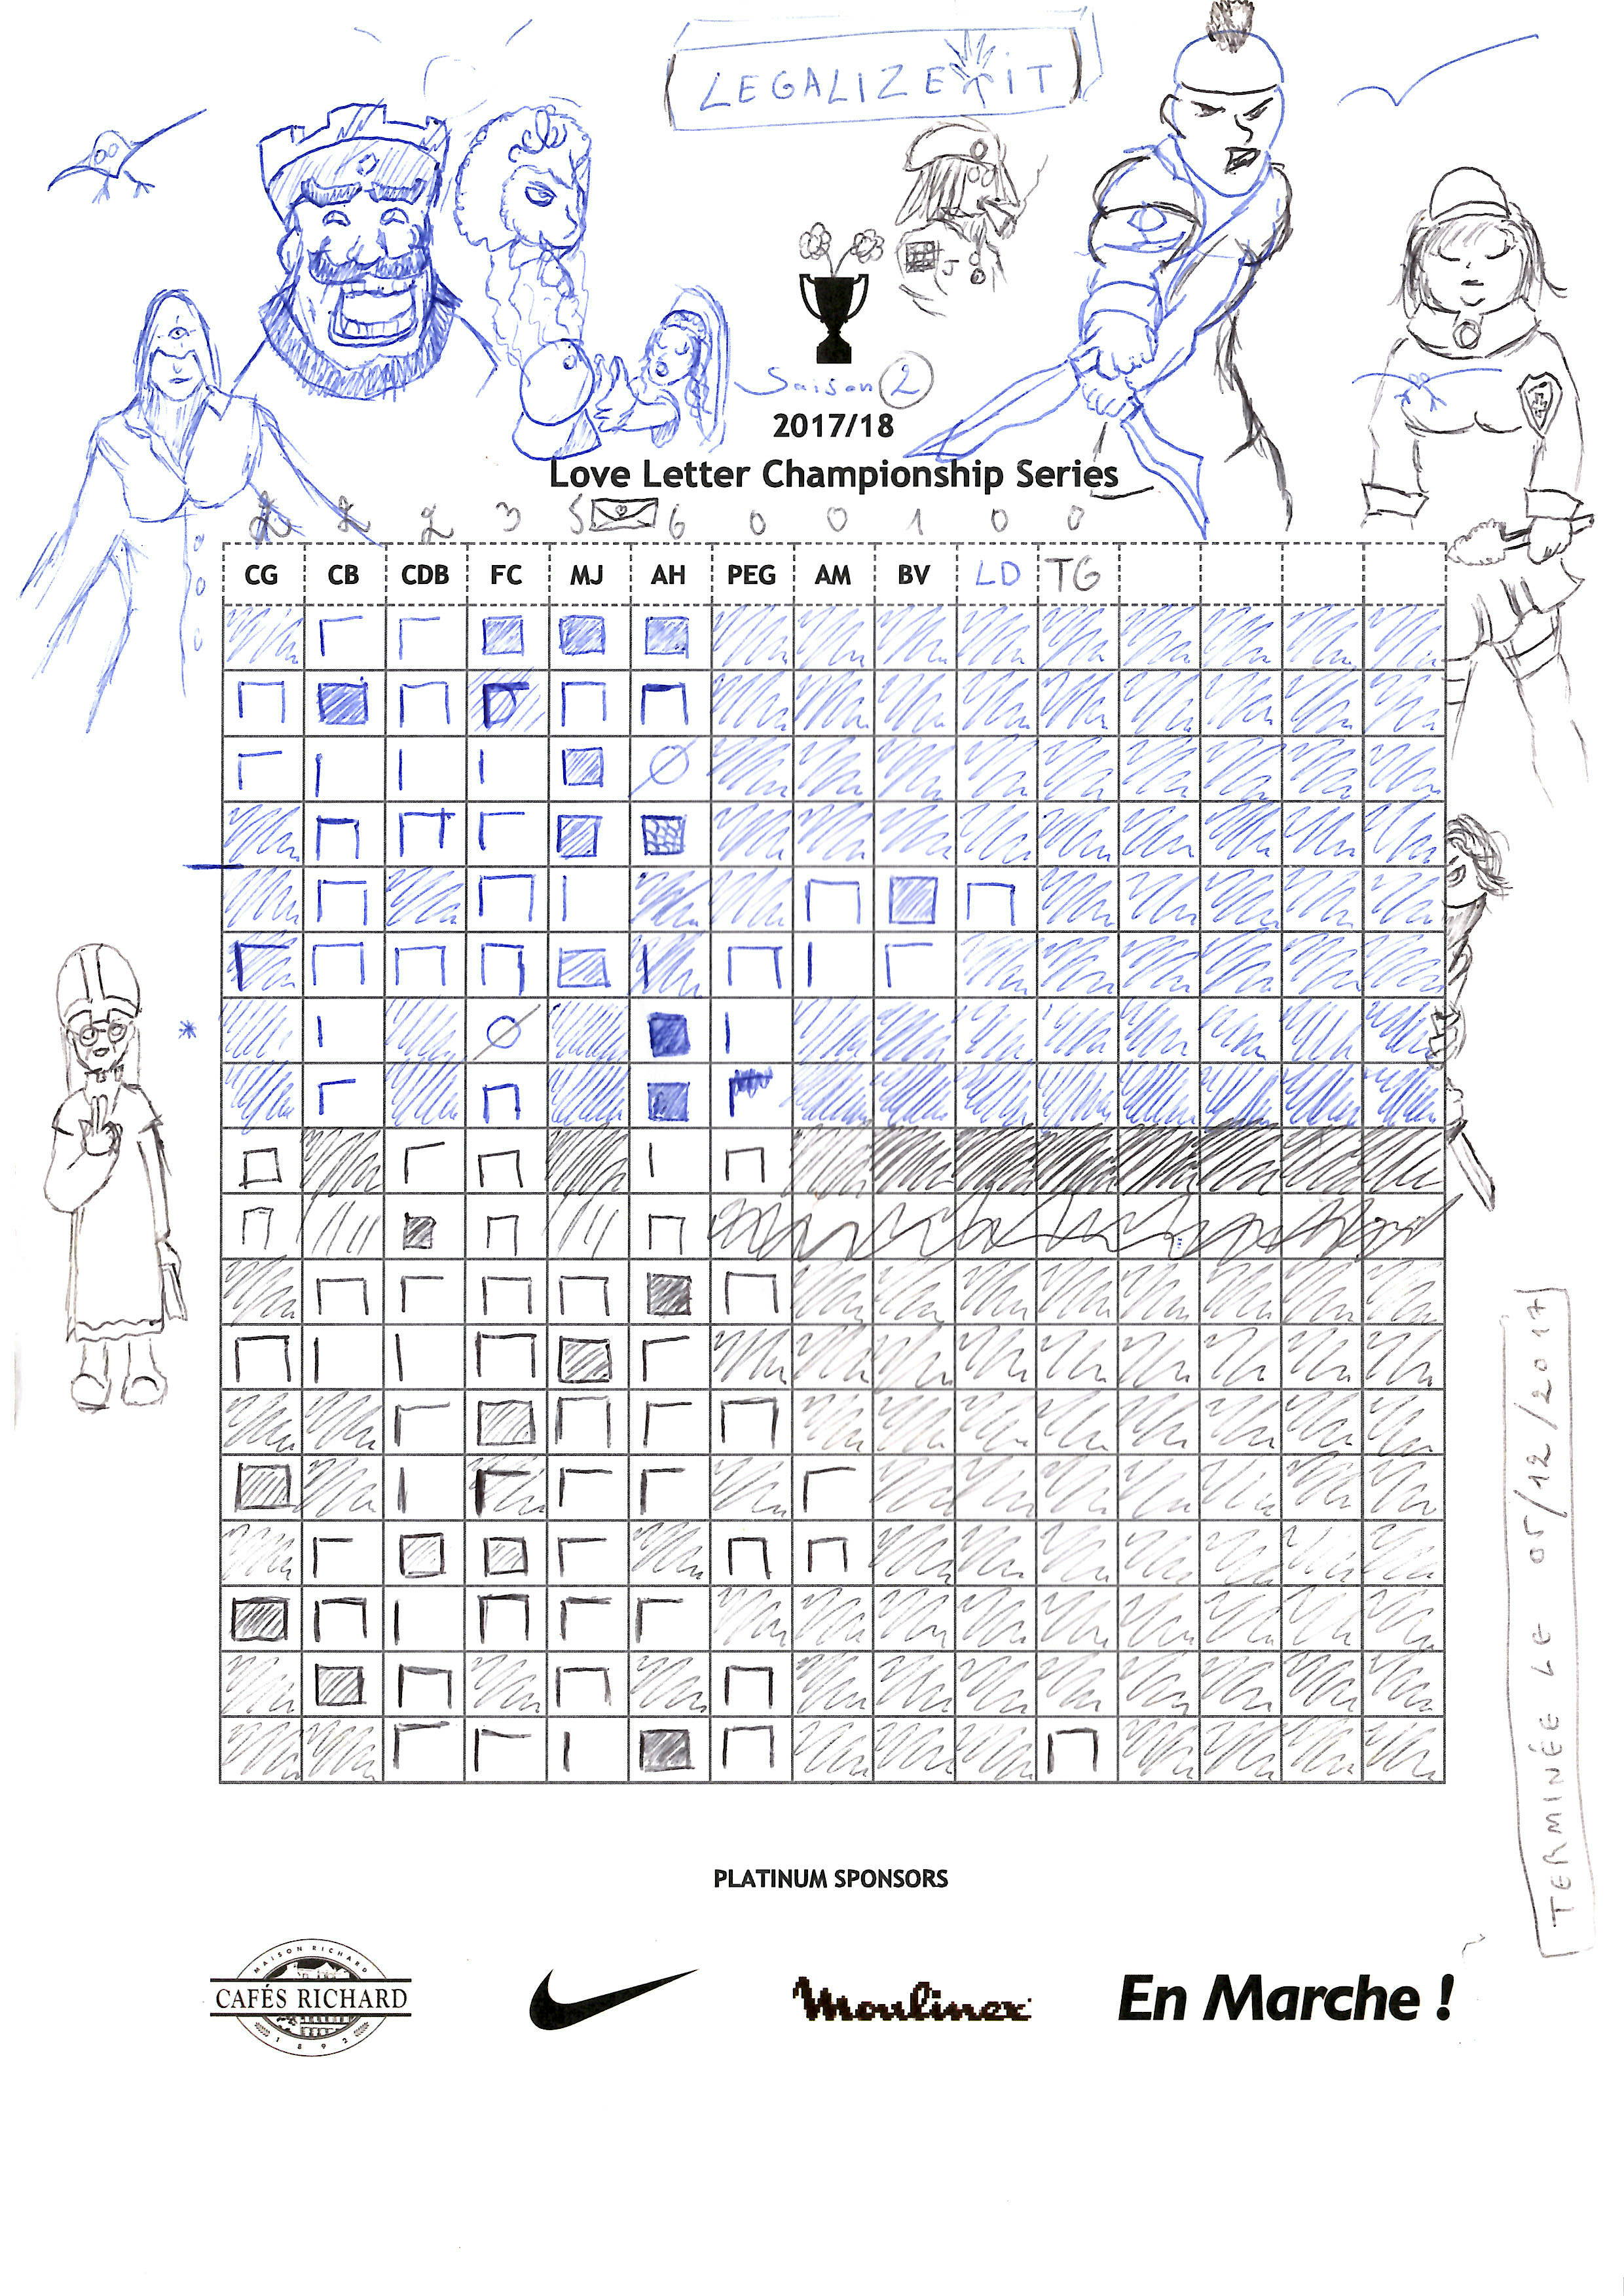 LEGALIZE IT
Saison 2
2017/18
Love Letter Championship Series
2 2 2 3 5 6 0 0 1 0 0
CG CB CDB FC MJ AH PEG AM BV LD TG
J
TERMINÉE LE 05/12/2017
PLATINUM SPONSORS
MAISON RICHARD
CAFÉS RICHARD
1892
Moulinex
En Marche !